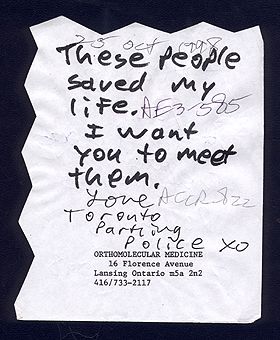 25 Oct 1998
These people
saved my
life. AE3-585
I want
you to meet
them.
Love ACCR 8122
Toronto
Parking
Police xo
ORTHOMOLECULAR MEDICINE
16 Florence Avenue
Lansing Ontario m5a 2n2
416/733-2117